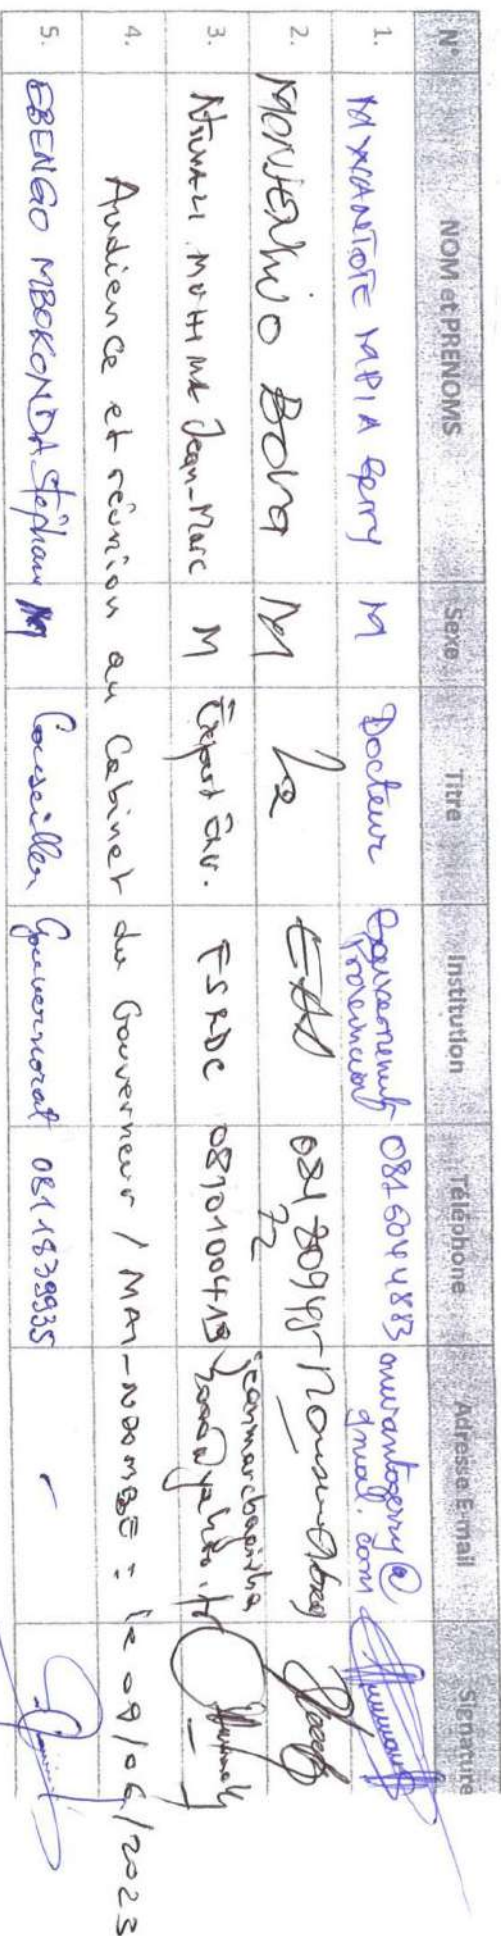 N° NOM et PRENOMS Sexe Titre Institution Téléphone Adresse E-mail Signature
1. MWANTOTE MPIA Gerry M Docteur Gouvernement Provincial 0816044883 mwantogerry@
gmail.com
2. MONSENGWO Bona M EAD 081 80945
72
3. Jean-Marc M Expert Env. FSRDC 0810100413 jeanmarc
yahoo.fr
4. Audience et réunion au Cabinet du Gouverneur / MAI-NDOMBE : le 09/06/2023
5. EBENGO MBOKONDA Stéphane M Conseiller Gouvernorat 0811839935 -